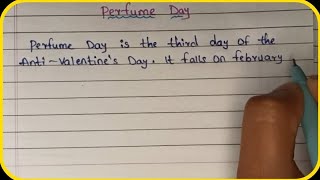 Perfume Day
Perfume Day is the third day of the
Anti-Valentine's Day. It falls on february